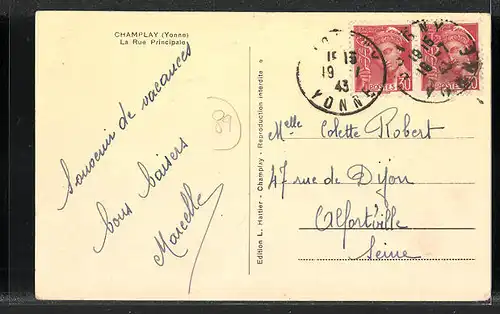 CHAMPLAY (Yonne)
La Rue Principale
Souvenir de vacances
bons baisers
Marcelle
89
Edition L. Hattier - Champlay - Reproduction interdite
15 15
19
43
YONNE
POSTES
Melle Colette Robert
47 rue de Dijon
Alfortville
Seine